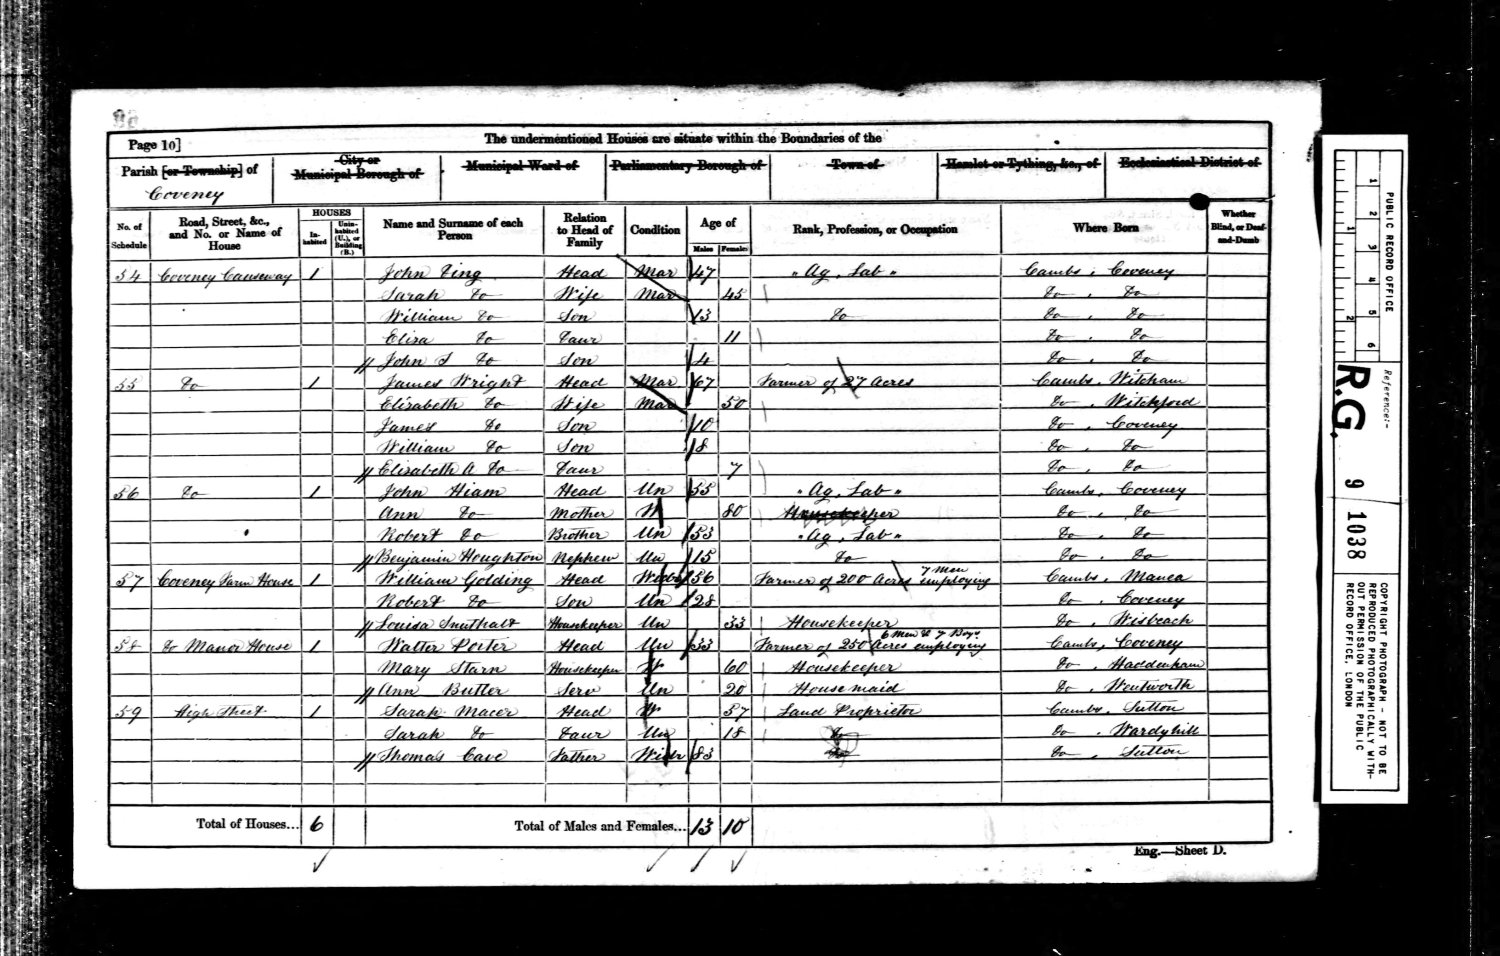 Page 10]
The undermentioned Houses are situate within the Boundaries of the
Parish [or Township] of
Coveney
City or
Municipal Borough of
Municipal Ward of
Parliamentary Borough of
Town of
Hamlet or Tything, &c., of
Ecclesiastical District of
No. of Schedule
Road, Street, &c., and No. or Name of House
HOUSES
In-habited
Unin-habited (U.), or Building (B.)
Name and Surname of each Person
Relation to Head of Family
Condition
Age of
Males
Females
Rank, Profession, or Occupation
Where Born
Whether Blind, or Deaf-and-Dumb
54 Coveney Causeway 1 John Ting Head Mar 47 " Ag. Lab " Cambs. Coveney
Sarah Do Wife Mar 45 Do . Do
William Do Son 13 Do Do . Do
Eliza Do Daur 11 Do . Do
John S Do Son 4 Do . Do
55 Do 1 James Wright Head Mar 67 Farmer of 27 Acres Cambs. Witcham
Elisabeth Do Wife Mar 50 Do . Witchford
James Do Son 10 Do . Coveney
William Do Son 8 Do . Do
Elisabeth A Do Daur 7 Do . Do
56 Do 1 John Hiam Head Un 55 " Ag. Lab " Cambs. Coveney
Ann Do Mother W 80 Housekeeper Do . Do
Robert Do Brother Un 53 " Ag. Lab " Do . Do
Benjamin Houghton Nephew Un 15 Do Do . Do
57 Coveney Farm House 1 William Golding Head Widr 56 Farmer of 200 Acres employing 7 men Cambs. Manea
Robert Do Son Un 28 Do . Coveney
Louisa Housekeeper Un 33 Housekeeper Do . Wisbeach
58 Do Manor House 1 Walter Porter Head Un 33 Farmer of 250 Acres employing 6 men & 7 Boys Cambs. Coveney
Mary Starn Housekeeper W 60 Housekeeper Do . Haddenham
Ann Butler Serv Un 20 Housemaid Do . Wentworth
59 High Street 1 Sarah Macer Head W 57 Land Proprietor Cambs. Sutton
Sarah Do Daur Un 18 Do Do . Wardyhill
Thomas Cave Father Widr 83 Do Do . Sutton
Total of Houses... 6
Total of Males and Females... 13 10
Eng.—Sheet D.
PUBLIC RECORD OFFICE
1 2 3 4 5 6
1 2
Reference:-
R.G. 9 1038
COPYRIGHT PHOTOGRAPH - NOT TO BE
REPRODUCED PHOTOGRAPHICALLY WITH-
OUT PERMISSION OF THE PUBLIC
RECORD OFFICE, LONDON